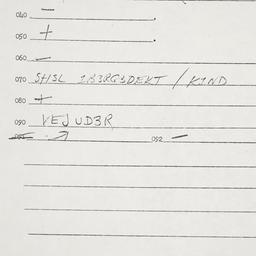 040 —
050 +
060 —
070 SHSL INBRGSDEKT / KIND
080 +
090 VEJUDBR
092 —